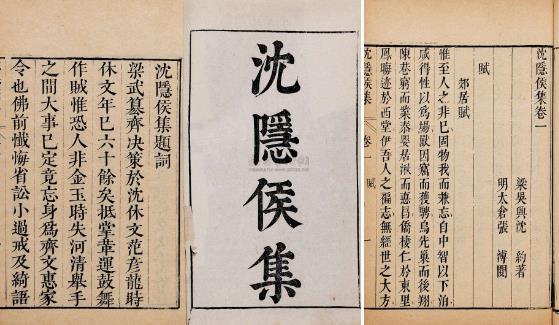 沈隱侯集題詞
梁武篡齊决策於沈休文范彥龍時
休文年已六十餘矣抵掌革運鼓舞
作賊惟恐人非金玉時失河清舉手
之間大事已定竟忘身爲齊文惠家
令也佛前懺悔省訟小過戒及綺語
沈隱侯集
沈隱侯集卷一
梁吳興沈 約著
明太倉張 溥閱
賦
郊居賦
惟至人之非已固物我而兼忘自中智以下洎
咸得性以爲場獸因窟而獲騁鳥先巢而後翔
陳巷窮而業泰嬰居湫而德昌僑棲仁於東里
鳳晦迹於西堂伊吾人之褊志無經世之大方
沈隱侯集 卷一 賦